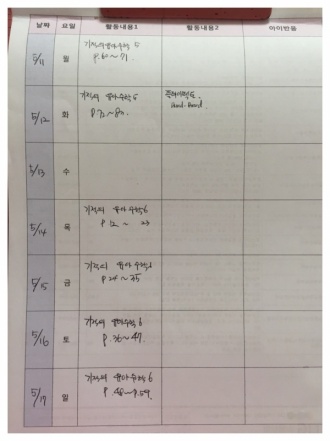 날짜 요일 활동내용1 활동내용2 아이반응
5/11 월 기적의 유아수학 5
p.60~71.
5/12 화 기적의 유아수학 5
p.72~83.
5/13 수
5/14 목 기적의 유아수학 6
p.12~23
5/15 금 기적의 유아수학 6
p.24~35
5/16 토 기적의 유아수학 6
p.36~47.
5/17 일 기적의 유아수학 6
p.48~p.59.